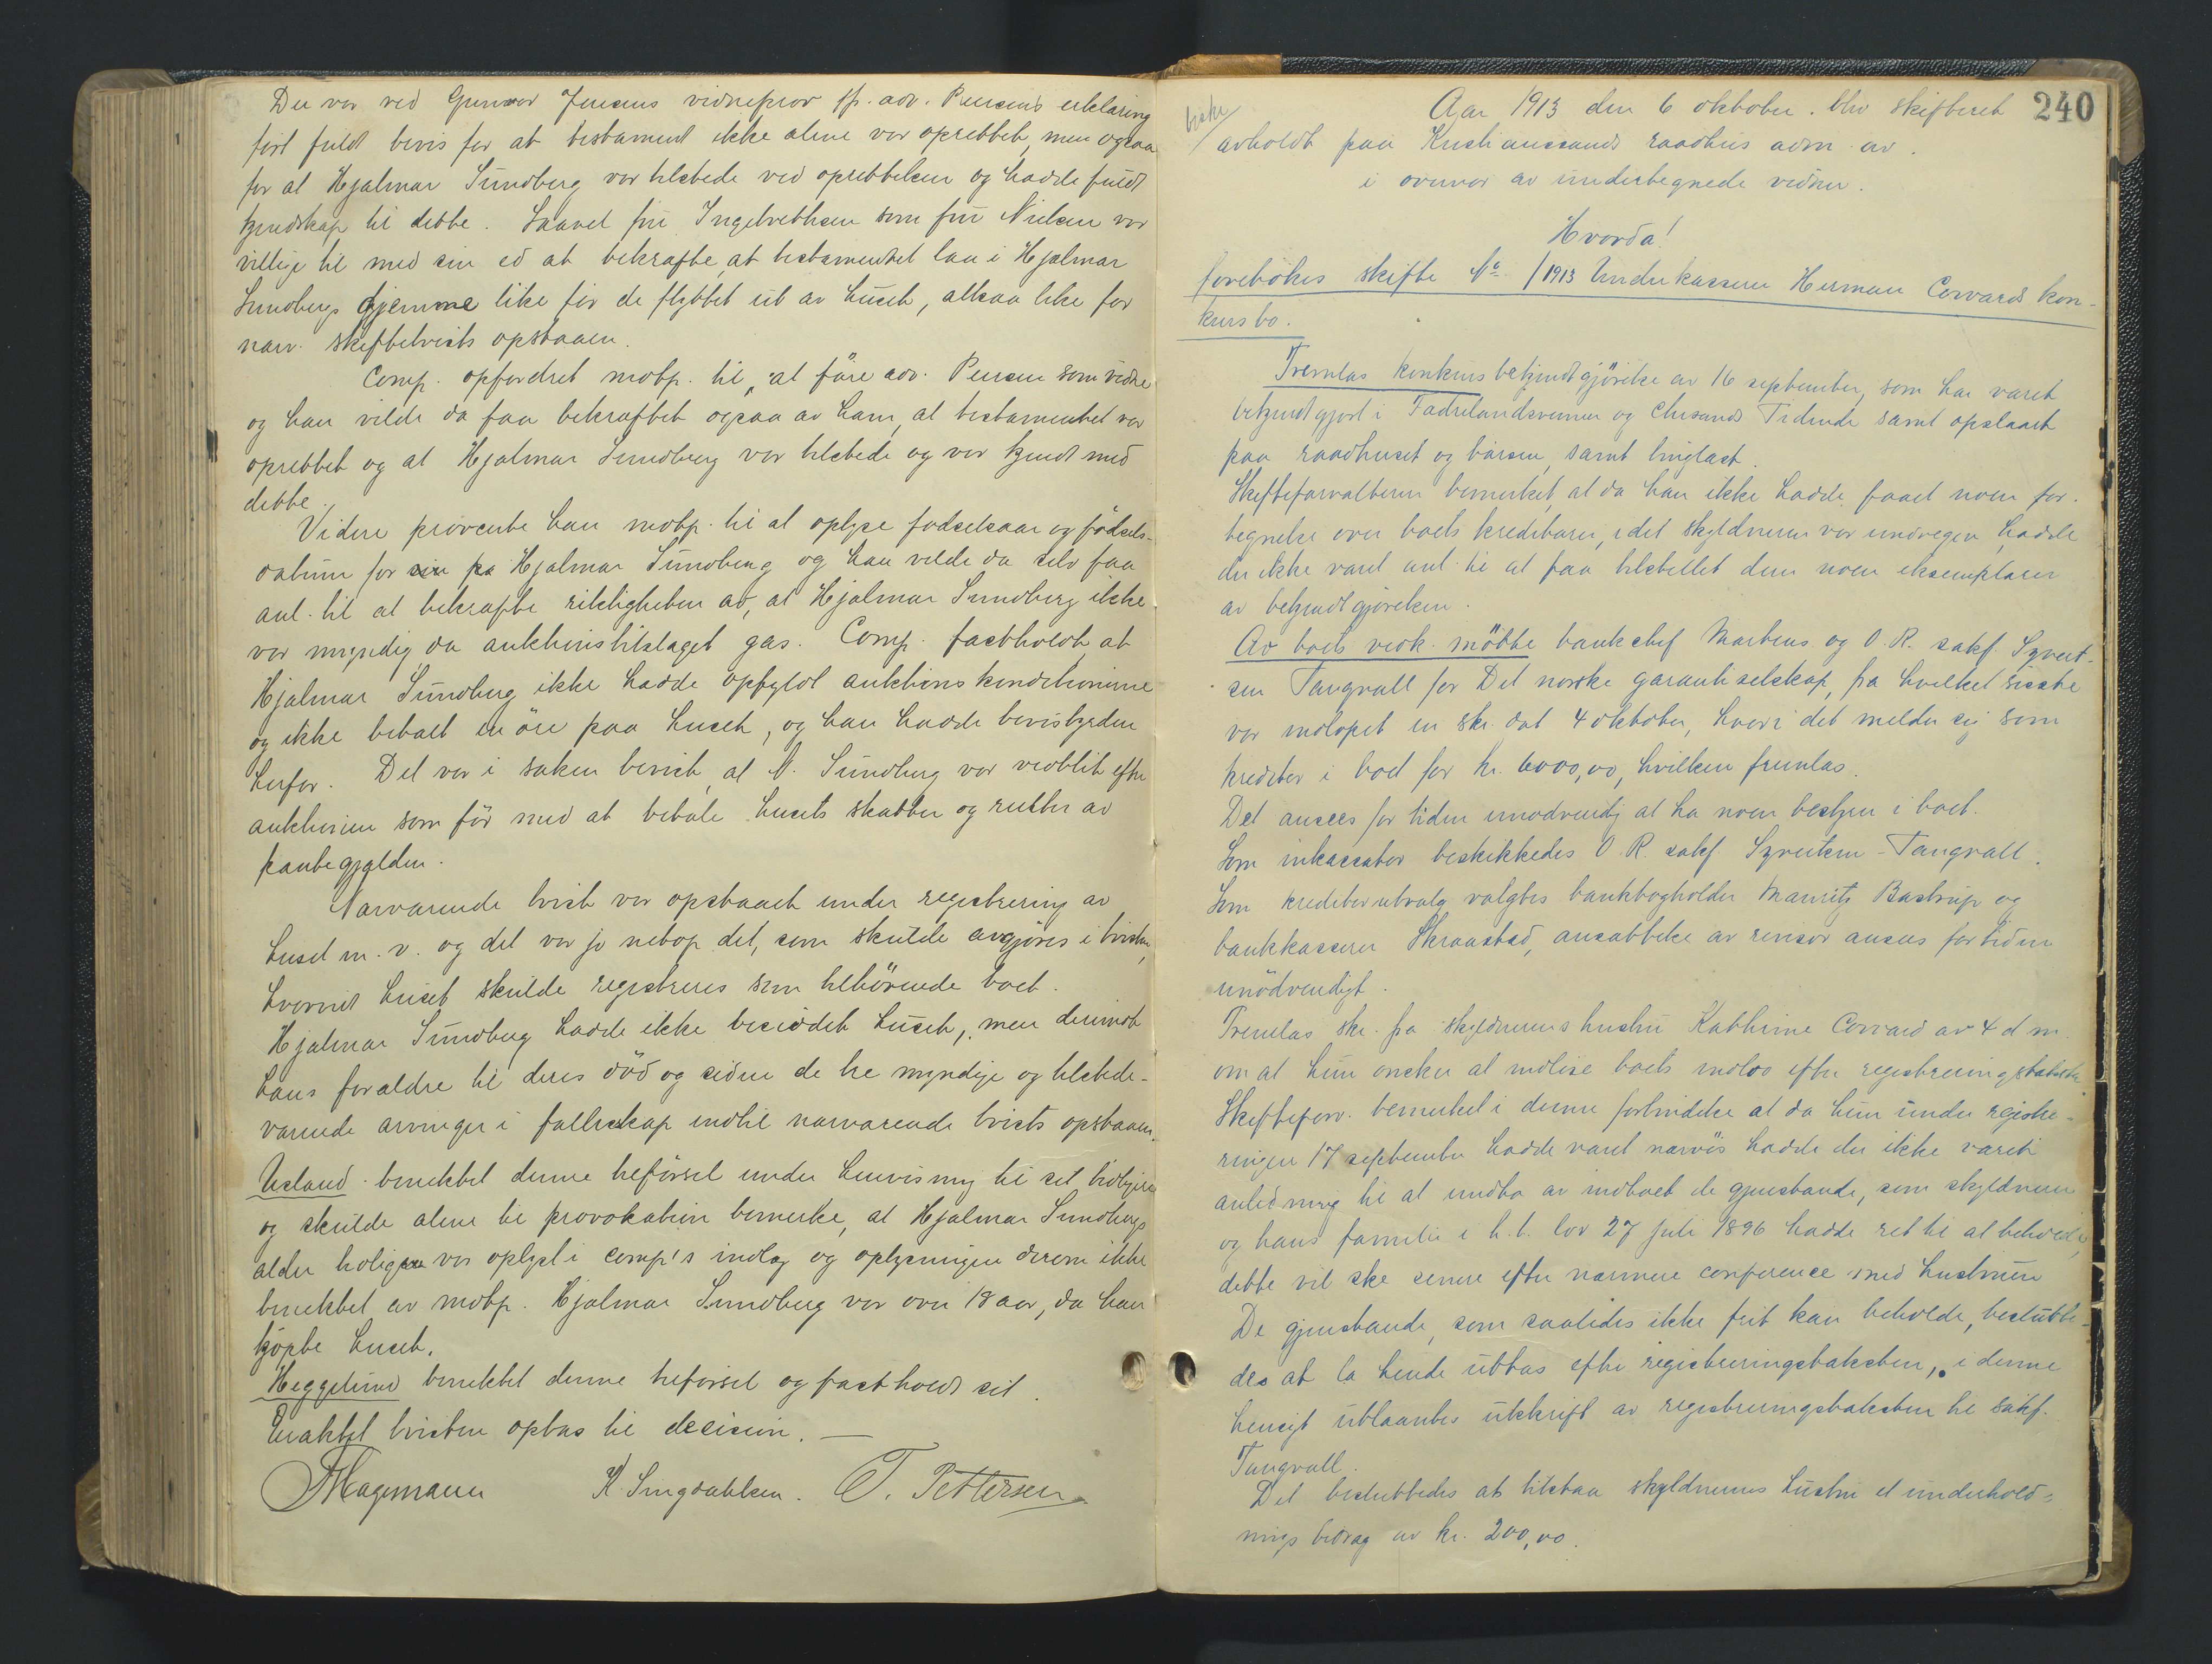 Der var ved Gunvor Jensens vidneprov sp. adv. Pensens erklæring
ført fuldt bevis for at testament ikke alene var oprettet, men ogsaa
for at Hjalmar Sundberg var tilstede ved oprettelsen og hadde fuldt
kjendskap til dette. Saavel fru Ingebrethsen som fru Nielsen var
villige til med sin ed at bekræfte at testamentet laa i Hjalmar
Sundbergs gjemme like før de flyttet ut av huset, altsaa like før
nærv. skiftetvists opstaaen.
Comp. opfordret motp. til at føre adv. Pensen som vidne
og han vilde da faa bekræftet ogsaa av ham, at testamentet var
oprettet og at Hjalmar Sundberg var tilstede og var kjendt med
dette.
Videre provocerte han motp. til at oplyse fødselsaar og fødsels-
datum for Hjalmar Sundberg og han vilde da selv faa
anl. til at bekræfte riktigheten av, at Hjalmar Sundberg ikke
var myndig da auktionstilslaget gas. Comp. fastholdt at
Hjalmar Sundberg ikke hadde opfyldt auktionskonditionerne
og ikke betalt en øre paa huset, og han hadde bevisbyrden
herfor. Det var i saken bevist, at N. Sundberg var vedblit efter
auktionen som før med at betale husets skatter og renter av
pantegjælden.
Nærværende tvist var opstaaet under registrering av
huset m. v. og det var jo netop det, som skulde avgjøres i tvisten,
hvorvidt huset skulde registreres som tilhørende boet.
Hjalmar Sundberg hadde ikke besiddet huset, men derimot
hans forældre til deres død og siden de tre myndige og tilstede-
værende arvinger i fællesskap indtil nærværende tvists opstaaen.
Usland benektet denne tilførsel under henvisning til sit tidligere
og skulde alene til provokation bemerke, at Hjalmar Sundbergs
alder tidligere var oplyst i comp's indlæg og oplysningen derom ikke
benektet av motp. Hjalmar Sundberg var over 18 aar, da han
kjøpte huset.
Heggelund benektet denne tilførsel og fastholdt sit.
Eraktet tvisten optas til decision. —
Hagemann K. Singdahlsen. T. Pettersen
240
Aar 1913 den 6 oktober blev skifteret
avholdt paa Kristianssands raadhus adm. av
i overvær av undertegnede vidner.
Hvorda!
foretokes skifte No /1913 Underkasserer Herman Corvards kon-
kursbo.
Fremlas konkursbekjendtgjørelse av 16 september, som har været
bekjendtgjort i Fædrelandsvennen og Chrsands Tidende samt opslaaet
paa raadhuset og børsen, samt tinglæst.
Skifteforvalteren bemerket, at da han ikke hadde faaet noen for-
tegnelse over boets kreditorer, idet skyldneren var undvegen, hadde
der ikke været anl. til at faa tilstillet dem noen eksemplarer
av bekjendtgjørelsen.
Av boets vedk. møtte bankchef Martens og O. R. sakf. Syvert-
sen Tangvall for Det norske garantiselskap, fra hvilket sidste
var indløpet en skr. dat 4 oktober, hvori det melder sig som
kreditor i boet for kr. 6000,00, hvilken fremlas.
Det ansees for tiden unødvendig at ha noen bestyrer i boet.
Som inkassator beskikkedes O. R. sakf. Syvertsen-Tangvall.
Som kreditorutvalg valgtes bankbogholder Mauritz Bastrup og
bankkasserer Skraastad, ansættelse av revisor ansees for tiden
unødvendigt.
Fremlas skr. fra skyldnerens hustru Kathrine Corvard av 4 d m
om at hun ønsker at indløse boets indbo efter registreringstaksten.
Skifteforv. bemerket i denne forbindelse at da hun under registre-
ringen 17 september hadde været nærvøs hadde der ikke været
anledning til at undta av indboet de gjenstande, som skyldneren
og hans familie i h. t. lov 27 juli 1896 hadde ret til at beholde,
dette vil ske senere efter nærmere conference med hustruen
De gjenstande, som saaledes ikke frit kan beholde, beslutte-
des at la hende uttas efter registreringstaksten, i denne
hensigt utlaantes utskrift av registreringstaksten til sakf.
Tangvall.
Det besluttedes at tilstaa skyldnerens hustru et underhold-
nings bidrag av kr. 200,00.